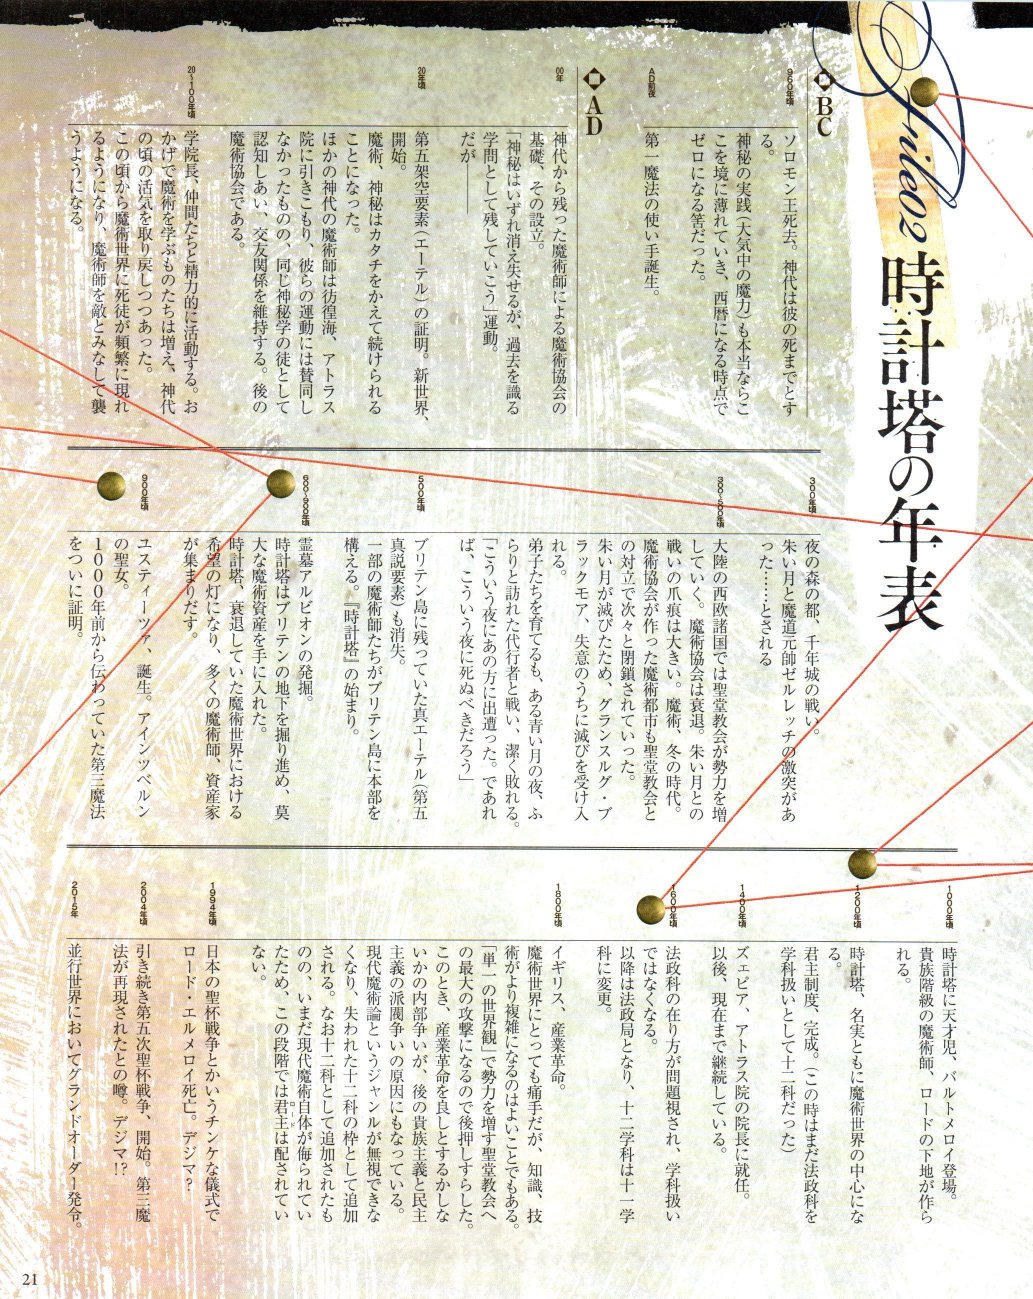 file02
時計塔の年表
BC
960年頃
ソロモン王死去。神代は彼の死までとす
る。
神秘の実践(大気中の魔力)も本当ならこ
こを境に薄れていき、西暦になる時点で
ゼロになる筈だった。
AD前夜
第一魔法の使い手誕生。
AD
00年
神代から残った魔術師による魔術協会の
基礎、その設立。
「神秘はいずれ消え失せるが、過去を識る
学問として残していこう」運動。
だが――
20年頃
第五架空要素(エーテル)の証明。新世界、
開始。
魔術、神秘はカタチをかえて続けられる
ことになった。
ほかの神代の魔術師は彷徨海、アトラス
院に引きこもり、彼らの運動には賛同し
なかったものの、同じ神秘学の徒として
認知しあい、交友関係を維持する。後の
魔術協会である。
20~100年頃
学院長、仲間たちと精力的に活動する。お
かげで魔術を学ぶものたちは増え、神代
の頃の活気を取り戻しつつあった。
この頃から魔術世界に死徒が頻繁に現れ
るようになり、魔術師を敵とみなして襲
うようになる。
300年頃
夜の森の都、千年城の戦い。
朱い月と魔道元帥ゼルレッチの激突があ
った……とされる
300~500年頃
大陸の西欧諸国では聖堂教会が勢力を増
していく。魔術協会は衰退。朱い月との
戦いの爪痕は大きい。魔術、冬の時代。
魔術協会が作った魔術都市も聖堂教会と
の対立で次々と閉鎖されていった。
朱い月が滅びたため、グランスルグ・ブ
ラックモア、失意のうちに滅びを受け入
れる。
弟子たちを育てるも、ある青い月の夜、ふ
らりと訪れた代行者と戦い、潔く敗れる。
「こういう夜にあの方に出遭った。であれ
ば、こういう夜に死ぬべきだろう」
500年頃
ブリテン島に残っていた真エーテル(第五
真説要素)も消失。
一部の魔術師たちがブリテン島に本部を
構える。『時計塔』の始まり。
600~900年頃
霊墓アルビオンの発掘。
時計塔はブリテンの地下を掘り進め、莫
大な魔術資産を手に入れた。
時計塔、衰退していた魔術世界における
希望の灯になり、多くの魔術師、資産家
が集まりだす。
900年頃
ユスティーツァ、誕生。アインツベルン
の聖女。
1000年前から伝わっていた第三魔法
をついに証明。
1000年頃
時計塔に天才児、バルトメロイ登場。
貴族階級の魔術師、ロードの下地が作ら
れる。
1200年頃
時計塔、名実ともに魔術世界の中心にな
る。
君主制度、完成。(この時はまだ法政科を
学科扱いとして十二科だった)
1400年頃
ズェピア、アトラス院の院長に就任。
以後、現在まで継続している。
1600年頃
法政科の在り方が問題視され、学科扱い
ではなくなる。
以降は法政局となり、十二学科は十一学
科に変更。
1800年頃
イギリス、産業革命。
魔術世界にとっても痛手だが、知識、技
術がより複雑になるのはよいことでもある。
「単一の世界観」で勢力を増す聖堂教会へ
の最大の攻撃になるので後押しすらした。
このとき、産業革命を良しとするかしな
いかの内部争いが、後の貴族主義と民主
主義の派閥争いの原因にもなっている。
現代魔術論というジャンルが無視できな
くなり、失われた十二科の枠として追加
される。なお十二科として追加されたも
のの、いまだ現代魔術自体が侮られてい
たため、この段階では君主は配されてい
ない。
1994年頃
日本の聖杯戦争とかいうチンケな儀式で
ロード・エルメロイ死亡。デジマ?
2004年頃
引き続き第五次聖杯戦争、開始。第三魔
法が再現されたとの噂。デジマ!?
2015年
並行世界においてグランドオーダー発令。
21